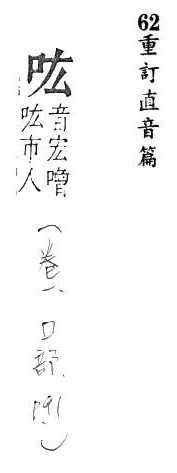 62重訂直音篇
吰
音宏噌
吰市人
(卷一 口部